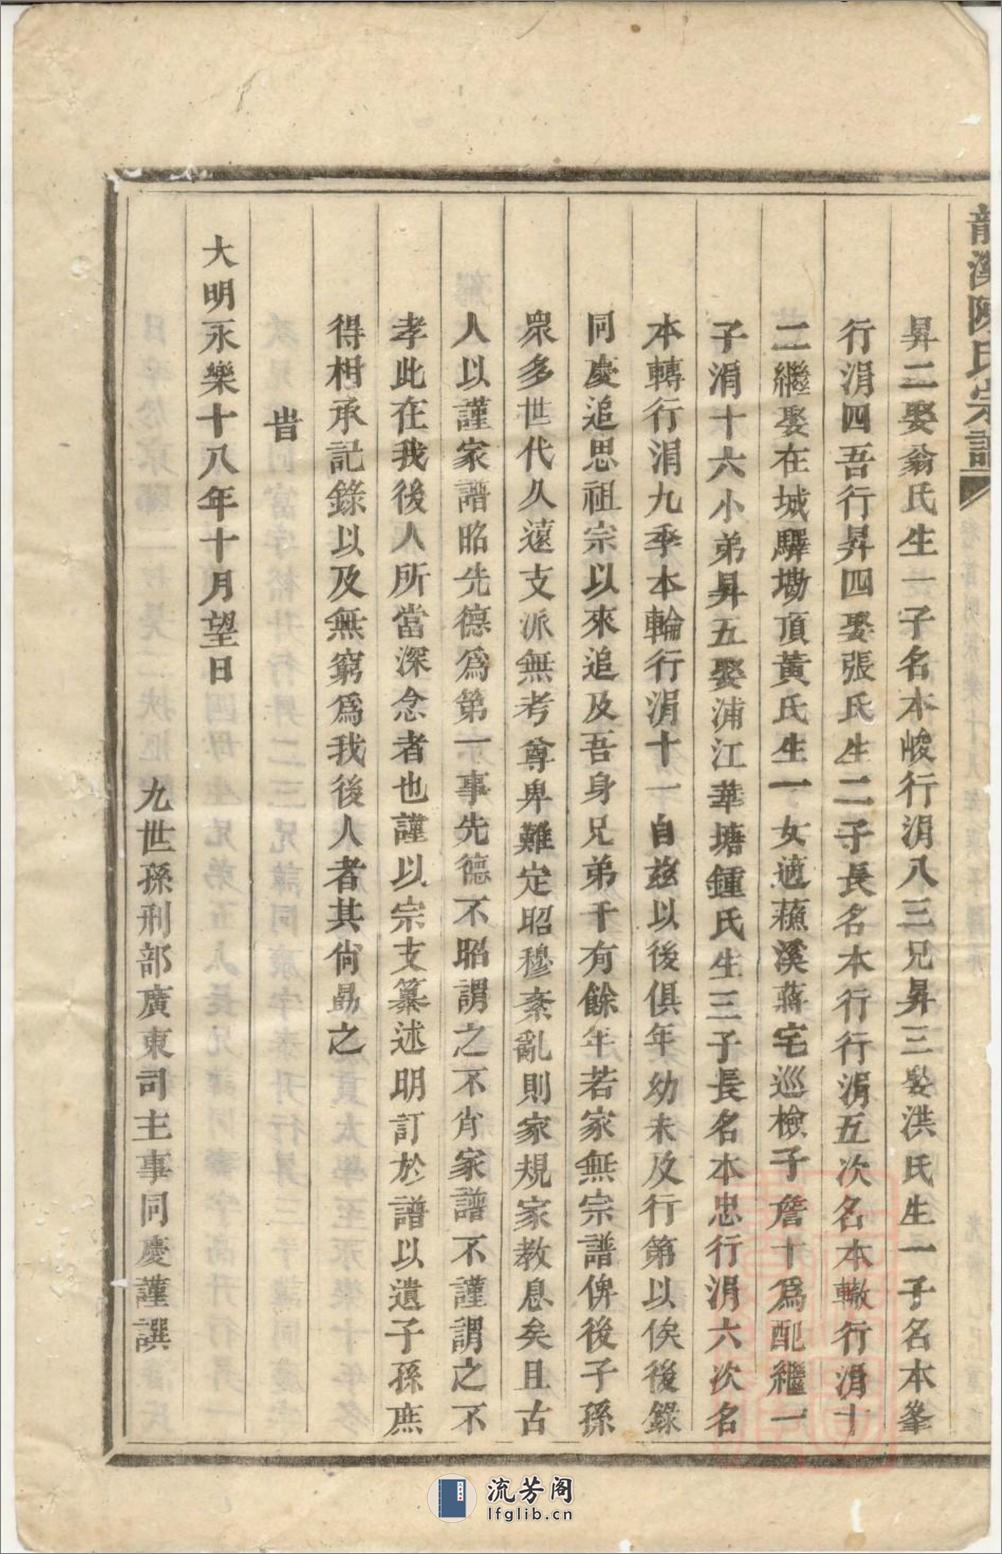 龍溪陳氏宗譜
昇二娶翁氏生一子名本峻行涓八三兄昇三娶洪氏生一子名本峯
行涓四吾行昇四娶張氏生二子長名本行行涓五次名本轍行涓十
二繼娶在城驛坳頂黃氏生一女適蘓溪蔣宅巡檢子詹十爲配繼一
子涓十六小弟昇五娶浦江華塘鍾氏生三子長名本忠行涓六次名
本轉行涓九季本輪行涓十一自兹以後俱年幼未及行第以俟後錄
同慶追思祖宗以來追及吾身兄弟千有餘年若家無宗譜俾後子孫
衆多世代久遠支派無考尊卑難定昭穆紊亂則家規家教息矣且古
人以謹家譜昭先德爲第一事先德不昭謂之不肖家譜不謹謂之不
孝此在我後人所當深念者也謹以宗支纂述明訂於譜以遺子孫庶
得相承記錄以及無窮爲我後人者其尙勗之
旹
大明永樂十八年十月望日
九世孫刑部廣東司主事同慶謹譔
流芳阁
lfglib.cn